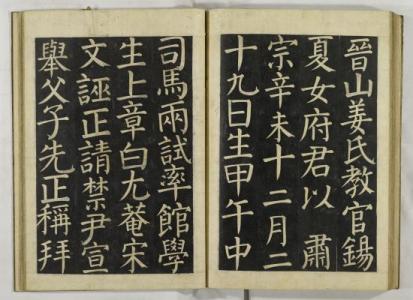 晉山姜氏教官錫
夏女府君以 肅
宗辛未十二月二
十九日生甲午中
司馬兩試率館學
生上章白尤菴宋
文誣正請禁尹宣
舉父子先正稱拜